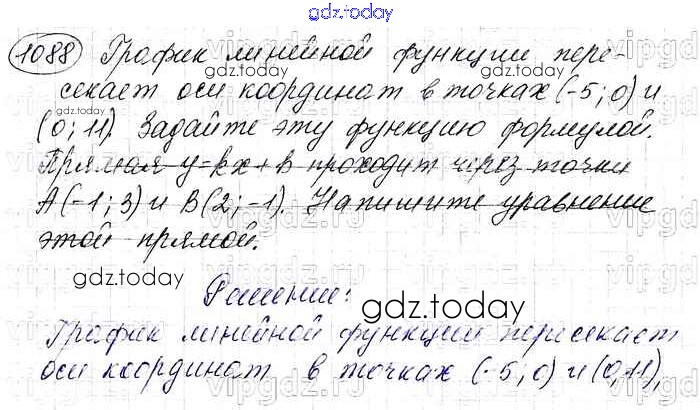 gdz.today
1088 График линейной функции пере-
секает оси координат в точках (-5; 0) и
(0; 11). Задайте эту функцию формулой.
Прямая y=kx+b проходит через точки
A(-1; 3) и B(2; -1). Напишите уравнение
этой прямой.
Решение:
График линейной функции пересекает
оси координат в точках (-5; 0) и (0, 11),
gdz.today
gdz.today
gdz.today
gdz.today
gdz.today